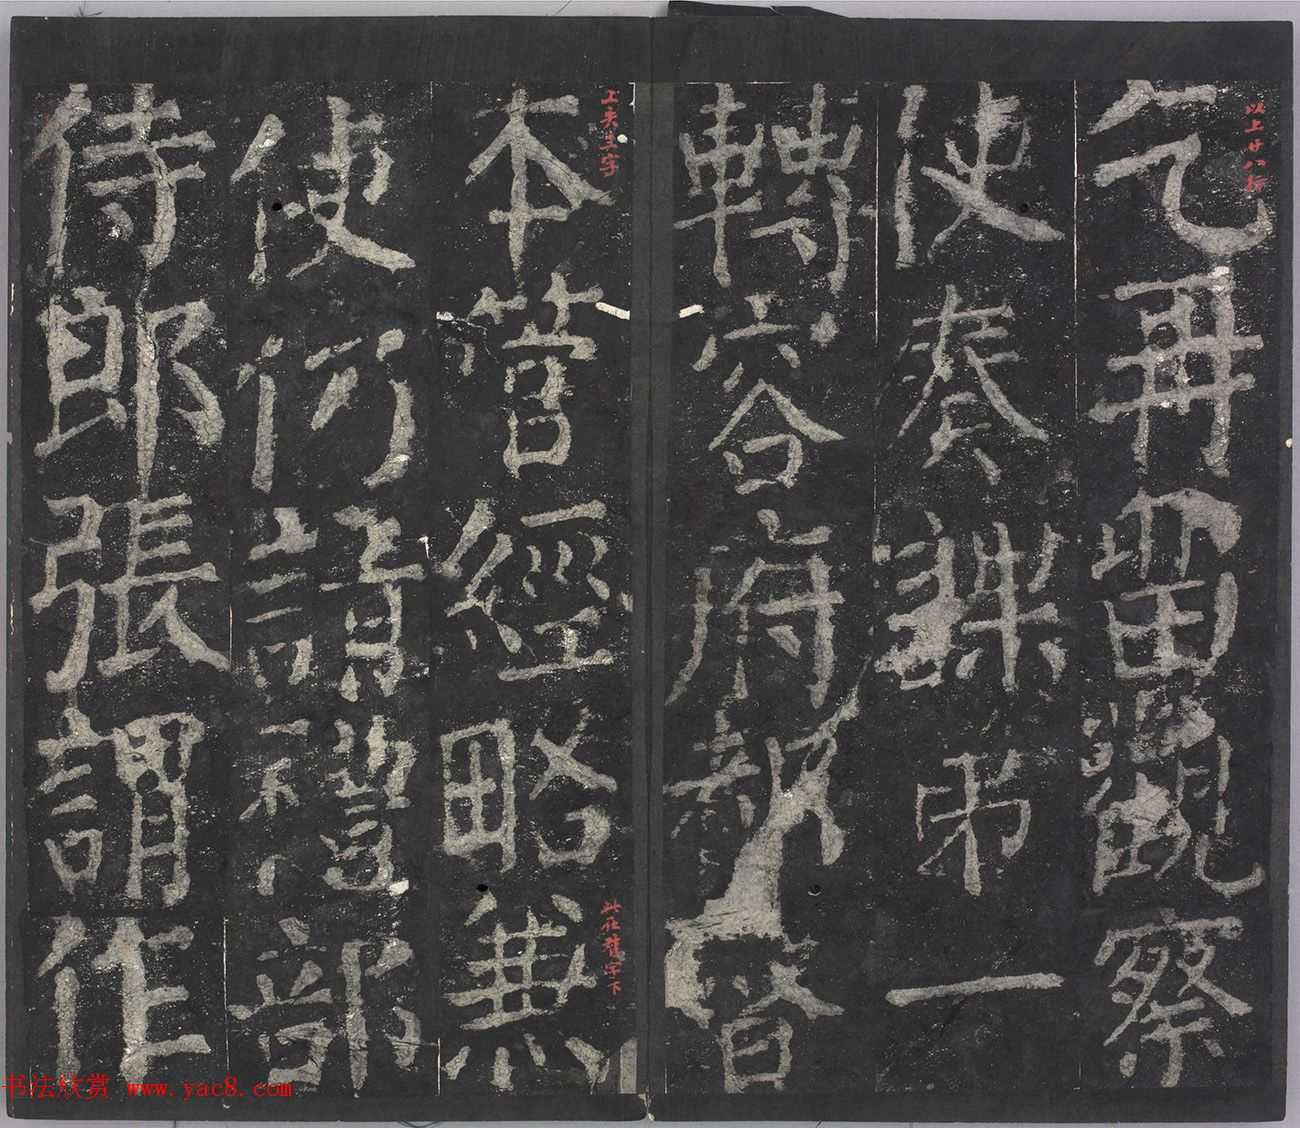 以上廿八行
乞再留觀察
使奏課弟一
轉容府都督
上失三字
本管經略兼
此在督字下
使仍請禮部
侍郎張謂作
书法欣赏 www.yac8.com